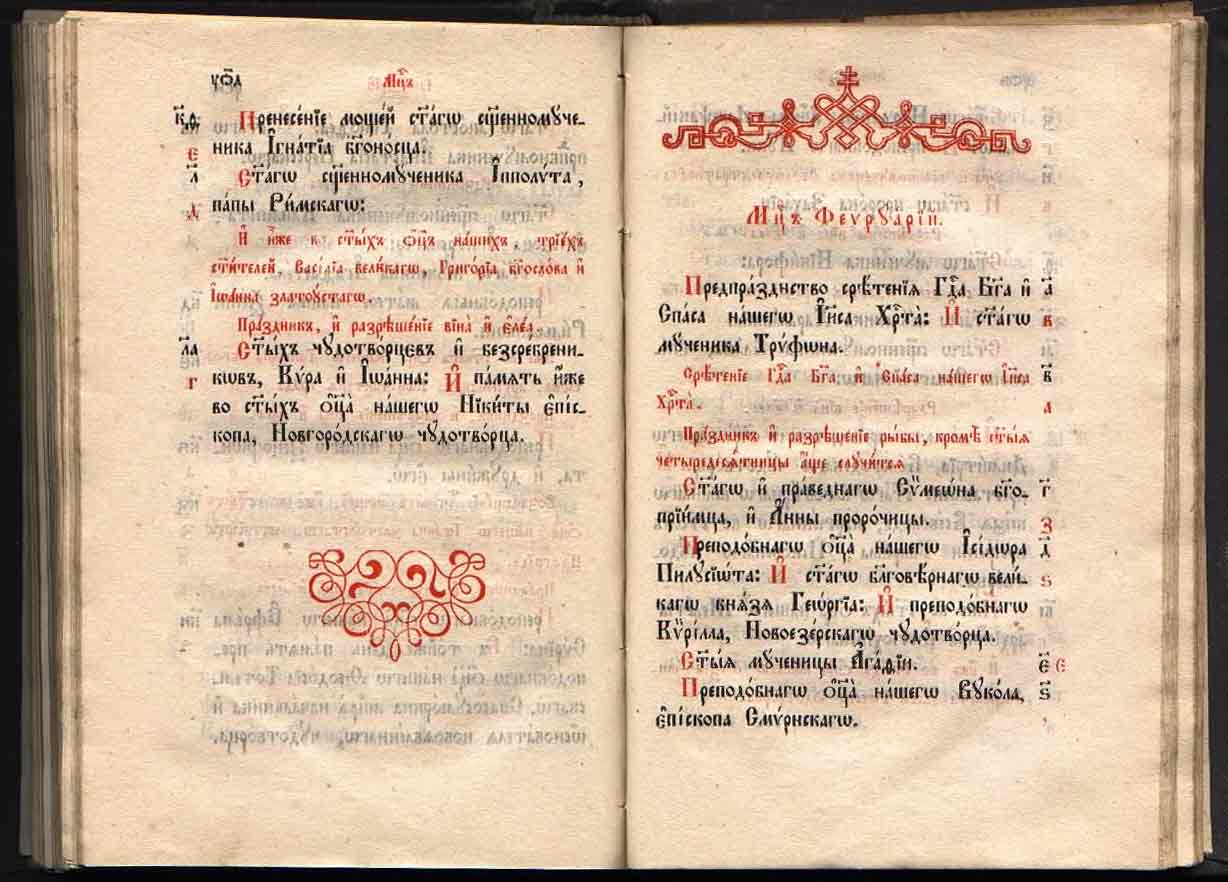 уѯ҃д
Мц҃ъ
к҃ѳ Пренесе́нїе моще́й ст҃а́гѡ сщ҃енномуче-
ника І҆гна́тїѧ бг҃оно́сца.
є
л҃ Ст҃а́гѡ сщ҃енномꙋ́ченика І҆пполѵ́та,
па́пы Ри́мскагѡ:
д
И҆ и҆́же в̾ ст҃ы́хъ ѻ҆ц҃ъ на́шихъ, трїе́хъ
ст҃и́телей, Васі́лїа вели́кагѡ, Григо́рїа бг҃осло́ва и҆
І҆ѡа́нна златоꙋ́стагѡ.
Пра́здникъ, и҆ разрѣше́нїе вїна̀ и҆ є҆ле́а.
л҃а Ст҃ы́хъ чꙋдотво́рцєвъ и҆ безсре́брени-
г кѡвъ, Кѵ́ра и҆ І҆ѡа́нна: И҆ па́мѧть и҆́же
во ст҃ы́хъ ѻ҆ц҃а̀ на́шегѡ Ники́ты є҆пі́с-
копа, Новгоро́дскагѡ чꙋдотво́рца.
Мц҃ъ Феврꙋа́рїй.
Предпра́зднство срѣ́тенїѧ Гд҃а Бг҃а и҆ а҃
Спа́са на́шегѡ І҆и҃са Хрⷭ҇та̀: И҆ ст҃а́гѡ в
мꙋ́ченика Трѵ́фѡна.
Срѣ́тенїе Гд҃а Бг҃а, и҆ Спа́са на́шегѡ І҆и҃са в҃
Хрⷭ҇та̀. а
Пра́здникъ и҆ разрѣше́нїе ры́бы, кромѣ̀ ст҃ы́ѧ
четыредесѧ́тницы а҆́ще слꙋчи́тсѧ
Ст҃а́гѡ и҆ пра́веднагѡ Сѷмеѡ́на бг҃о- г҃
прїи́мца, и҆ А҆́нны проро́чицы. з
Преподо́бнагѡ ѻ҆ц҃а̀ на́шегѡ І҆сі́дѡра д҃
Пилꙋсїѡ́та: И҆ ст҃а́гѡ бл҃говѣ́рнагѡ вели́- ѕ
кагѡ кнѧ́зѧ Геѡ́ргїа: И҆ преподо́бнагѡ
Кѷрі́лла, Новоезе́рскагѡ чꙋдотво́рца.
Ст҃ы́ѧ мꙋ́ченицы А҆га́ѳїи. є҃ є
Преподо́бнагѡ ѻ҆ц҃а̀ на́шегѡ Вꙋко́ла, ѕ҃
є҆пі́скопа Смѵ́рнскагѡ.